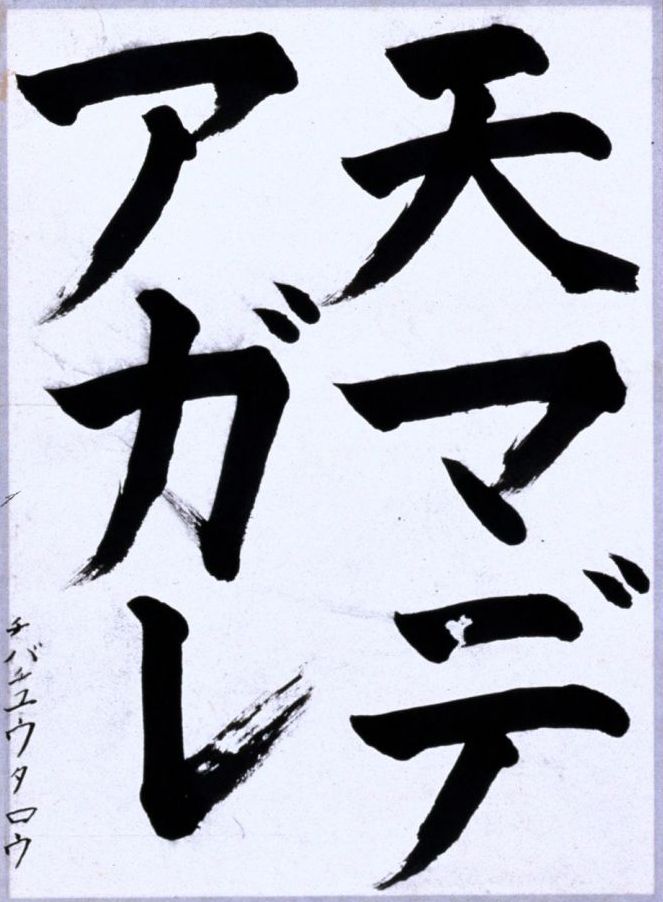 天マデ
アガレ
チバユウタロウ